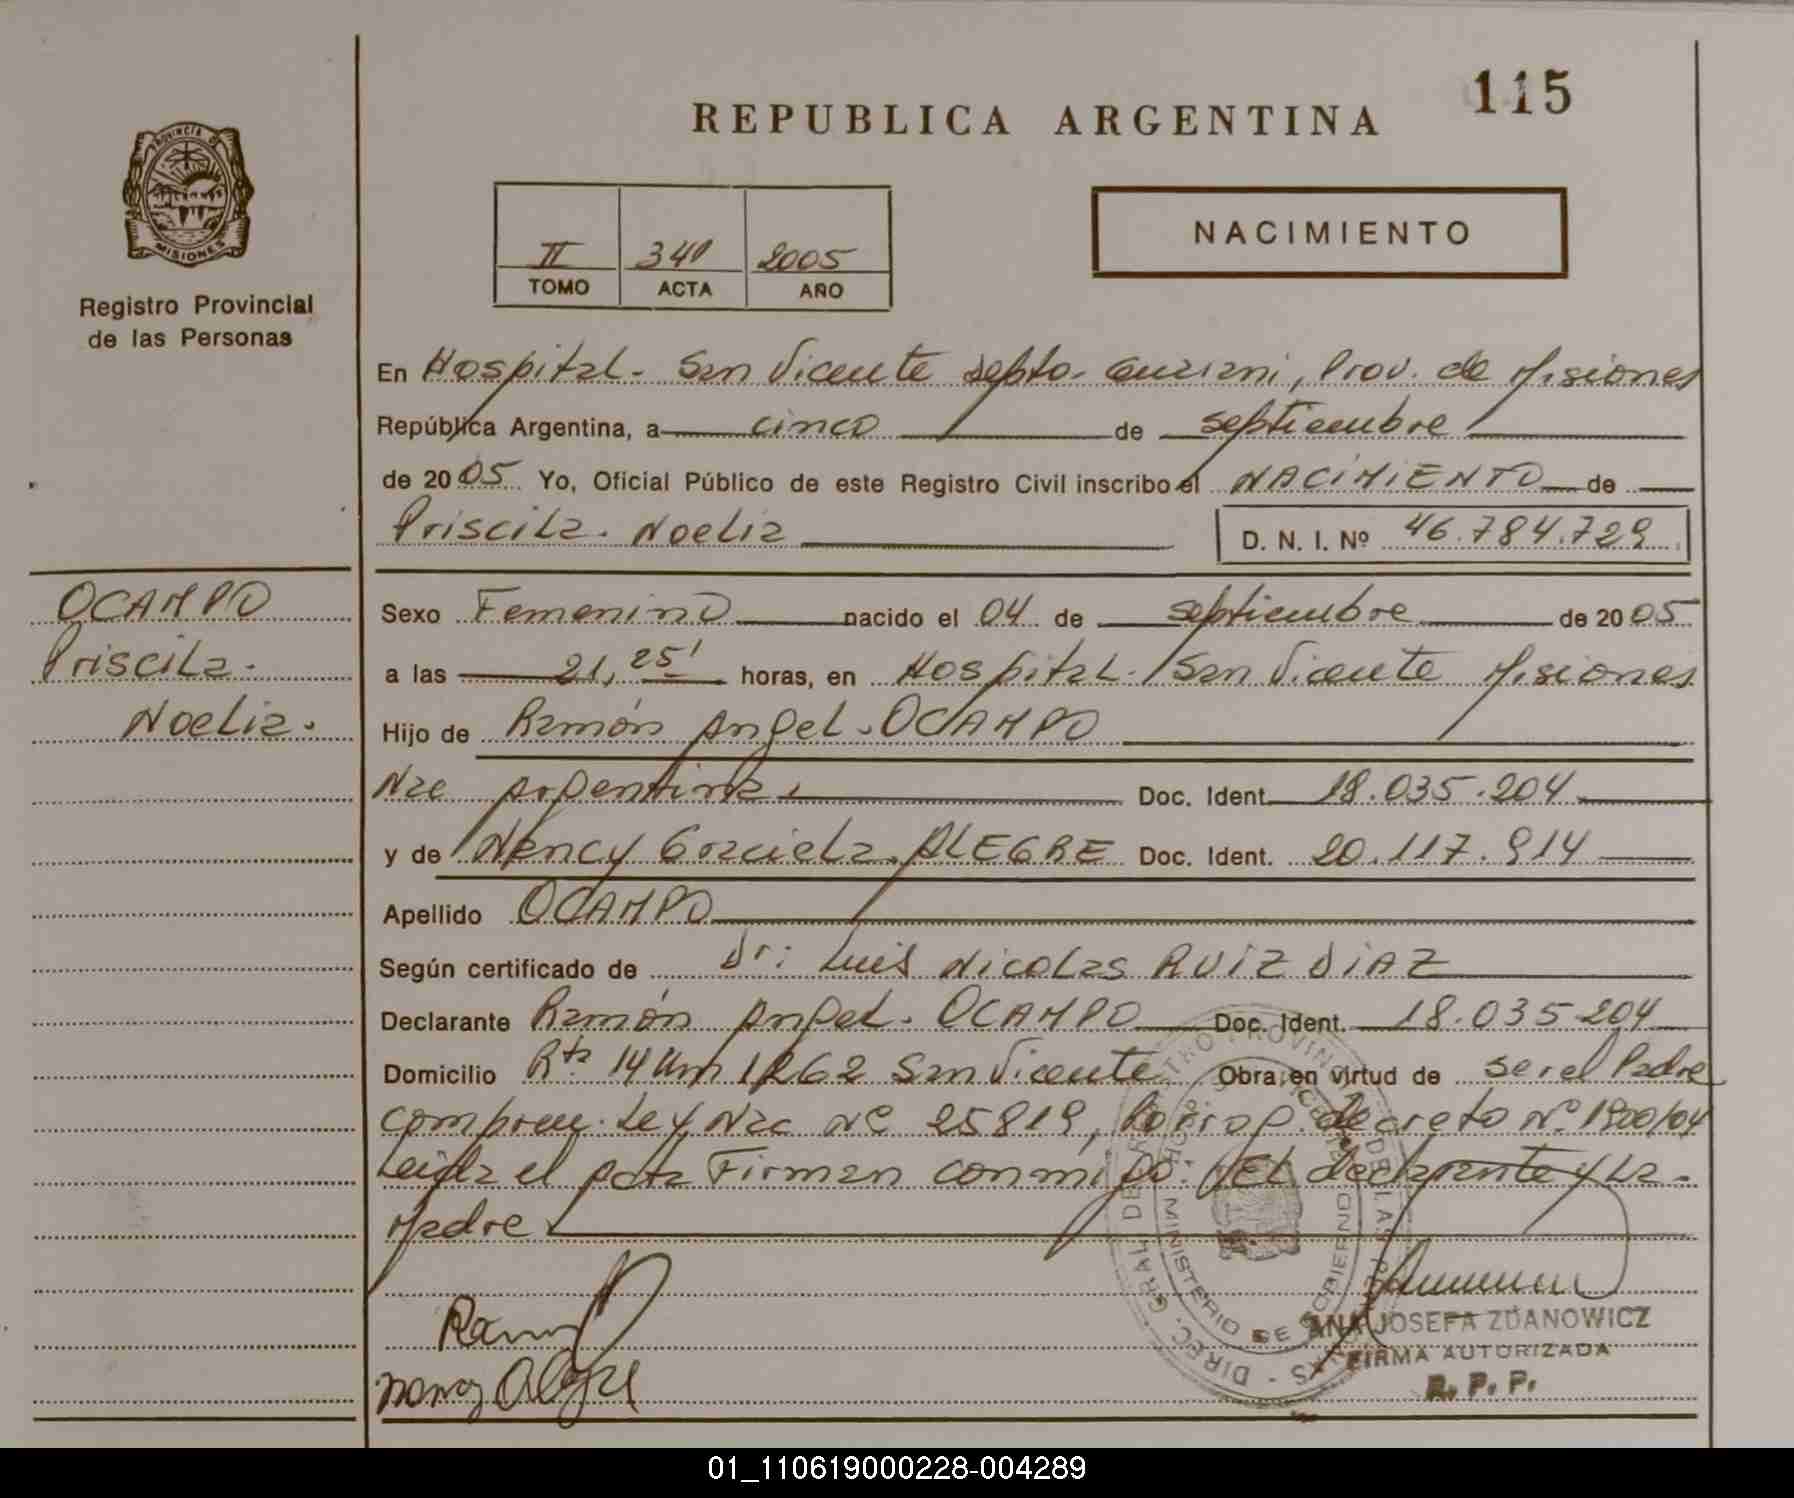 115
REPUBLICA ARGENTINA
PROVINCIA DE
MISIONES
Registro Provincial
de las Personas
II 340 2005
TOMO ACTA AÑO
NACIMIENTO
En Hospital. San Vicente Depto. Guaraní, Prov. de Misiones
República Argentina, a cinco de septiembre
de 2005 Yo, Oficial Público de este Registro Civil inscribo el NACIMIENTO de
Priscila. Noelia D. N. I. Nº 46.784.729
OCAMPO
Priscila.
Noelia.
Sexo Femenino nacido el 04 de septiembre de 2005
a las 21,25' horas, en Hospital. San Vicente Misiones
Hijo de Ramón Angel. OCAMPO
Nac Argentina. Doc. Ident. 18.035.204
y de Nancy Graciela. ALEGRE Doc. Ident. 20.117.914
Apellido OCAMPO
Según certificado de Dr: Luis Nicolas RUIZ DIAZ
Declarante Ramón Angel. OCAMPO Doc. Ident. 18.035.204
Domicilio Rta 14 Km 1262 San Vicente Obra en virtud de ser el Padre
Ley Nac Nº 25819, Decreto Nº 1900/04
Leida el Acta Firman conmigo: El declarante y La
Madre
Nancy Alegre
DIREC. GRAL DE REGISTRO PROVINCIAL DE LAS PERSONAS
MINISTERIO DE GOBIERNO
ANA JOSEFA ZDANOWICZ
FIRMA AUTORIZADA
R. P. P.
01_110619000228-004289